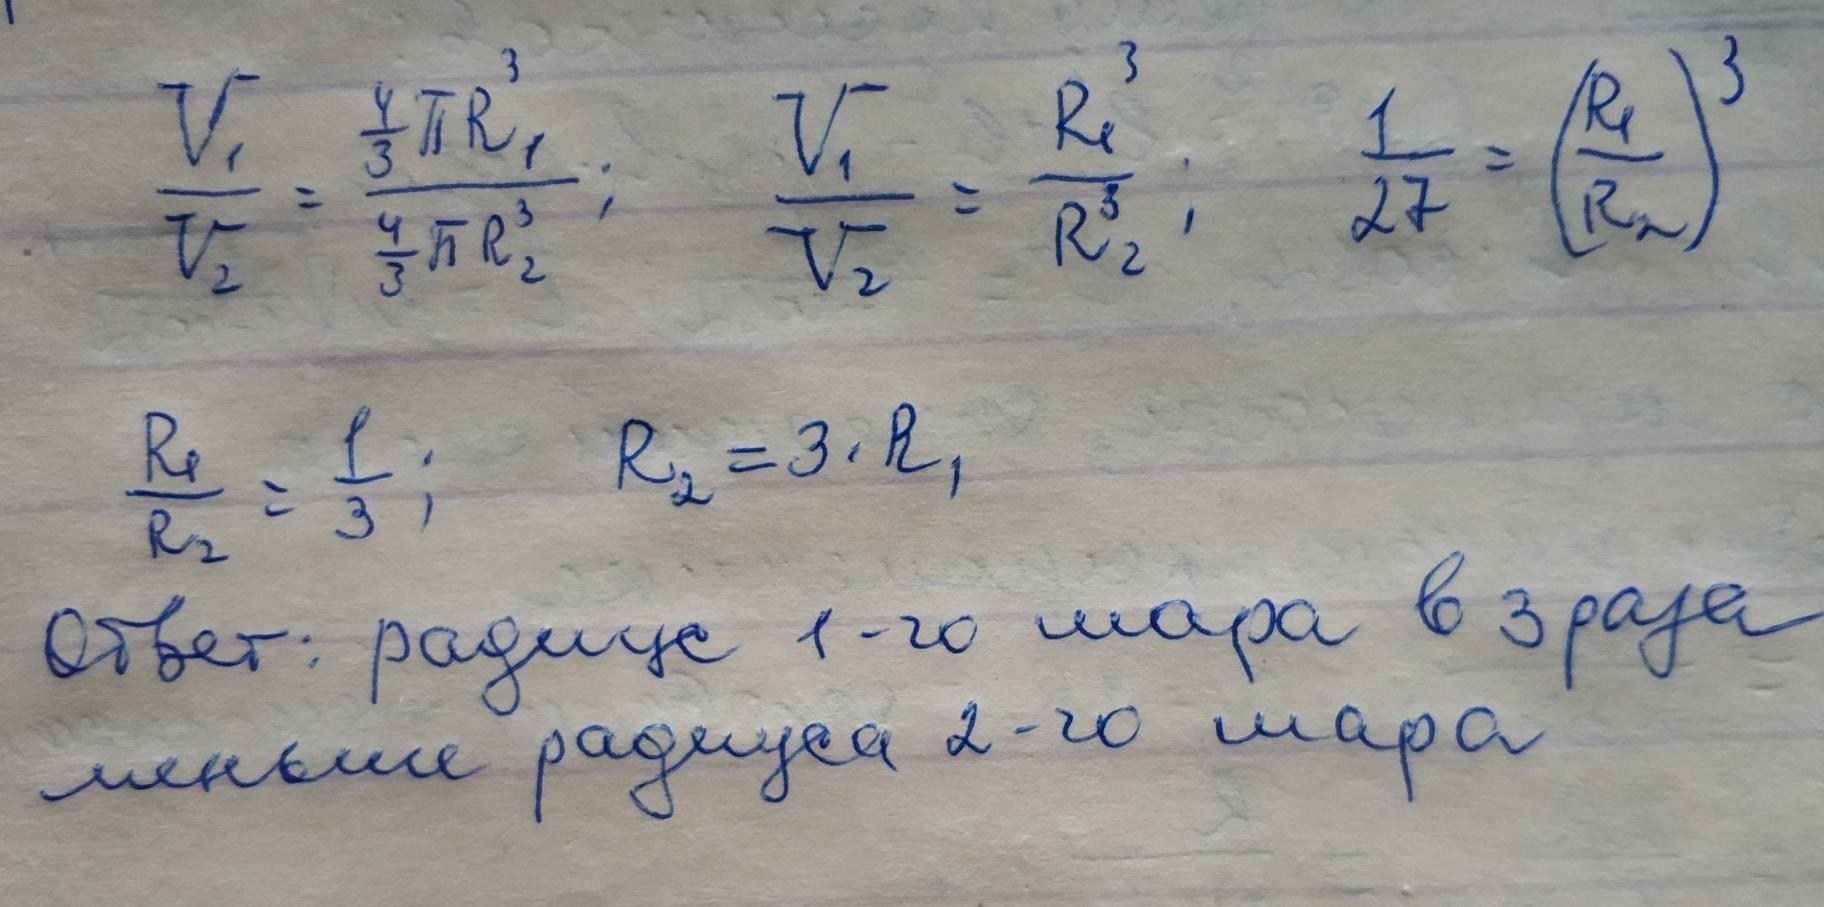 V₁/V₂ = (4/3 πR₁³)/(4/3 πR₂³); V₁/V₂ = R₁³/R₂³; 1/27 = (R₁/R₂)³
R₁/R₂ = 1/3; R₂ = 3·R₁
Ответ: радиус 1-го шара в 3 раза
меньше радиуса 2-го шара